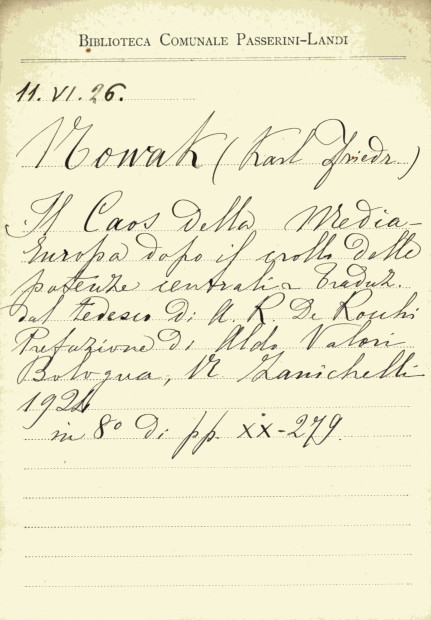 BIBLIOTECA COMUNALE PASSERINI-LANDI
11. VI. 26.
Nowak (Karl Friedr.)
Il Caos della Media-
Europa dopo il crollo delle
potenze centrali - Traduz.
dal tedesco di A. R. De Rocchi
Prefazione di Aldo Valori
Bologna, N. Zanichelli
1924
in 8° di pp. XX-279.